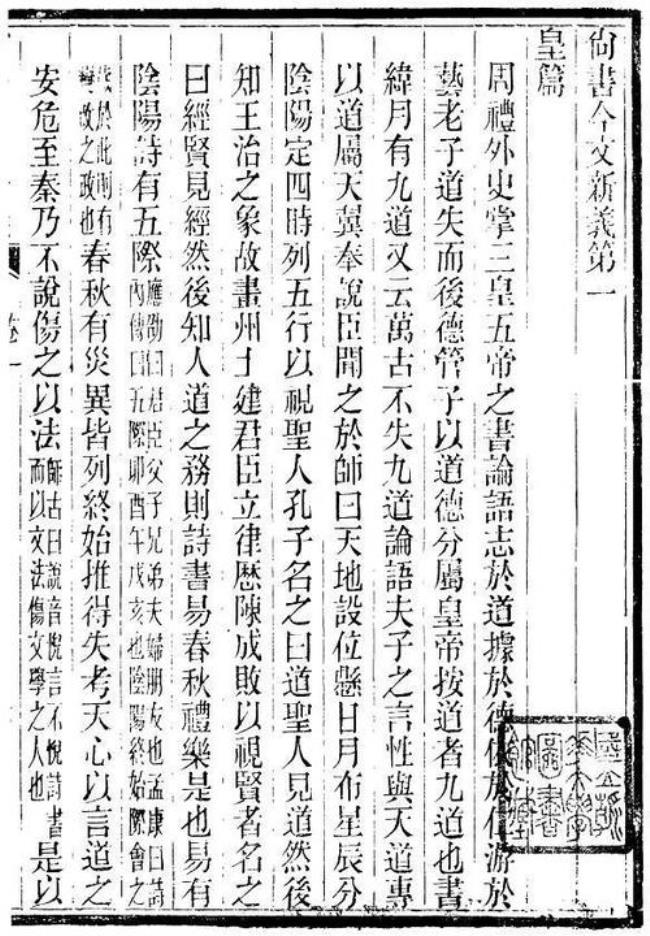 尙書今文新義第一
皇篇
周禮外史掌三皇五帝之書論語志於道據於德依於仁游於
藝老子道失而後德管子以道德分屬皇帝按道者九道也書
緯月有九道又云萬古不失九道論語夫子之言性與天道專
以道屬天翼奉說臣聞之於師曰天地設位懸日月布星辰分
陰陽定四時列五行以視聖人孔子名之曰道聖人見道然後
知王治之象故畫州土建君臣立律歷陳成敗以視賢者名之
曰經賢見經然後知人道之務則詩書易春秋禮樂是也易有
陰陽詩有五際應劭曰君臣父子兄弟夫婦朋友也孟康曰詩內傳曰五際卯酉午戌亥也陰陽終始際會之
歲於此則有變改之政也春秋有災異皆列終始推得失考天心以言道之
安危至秦乃不說傷之以法師古曰說音悅言不悅詩書而以文法傷文學之人也是以
卷一